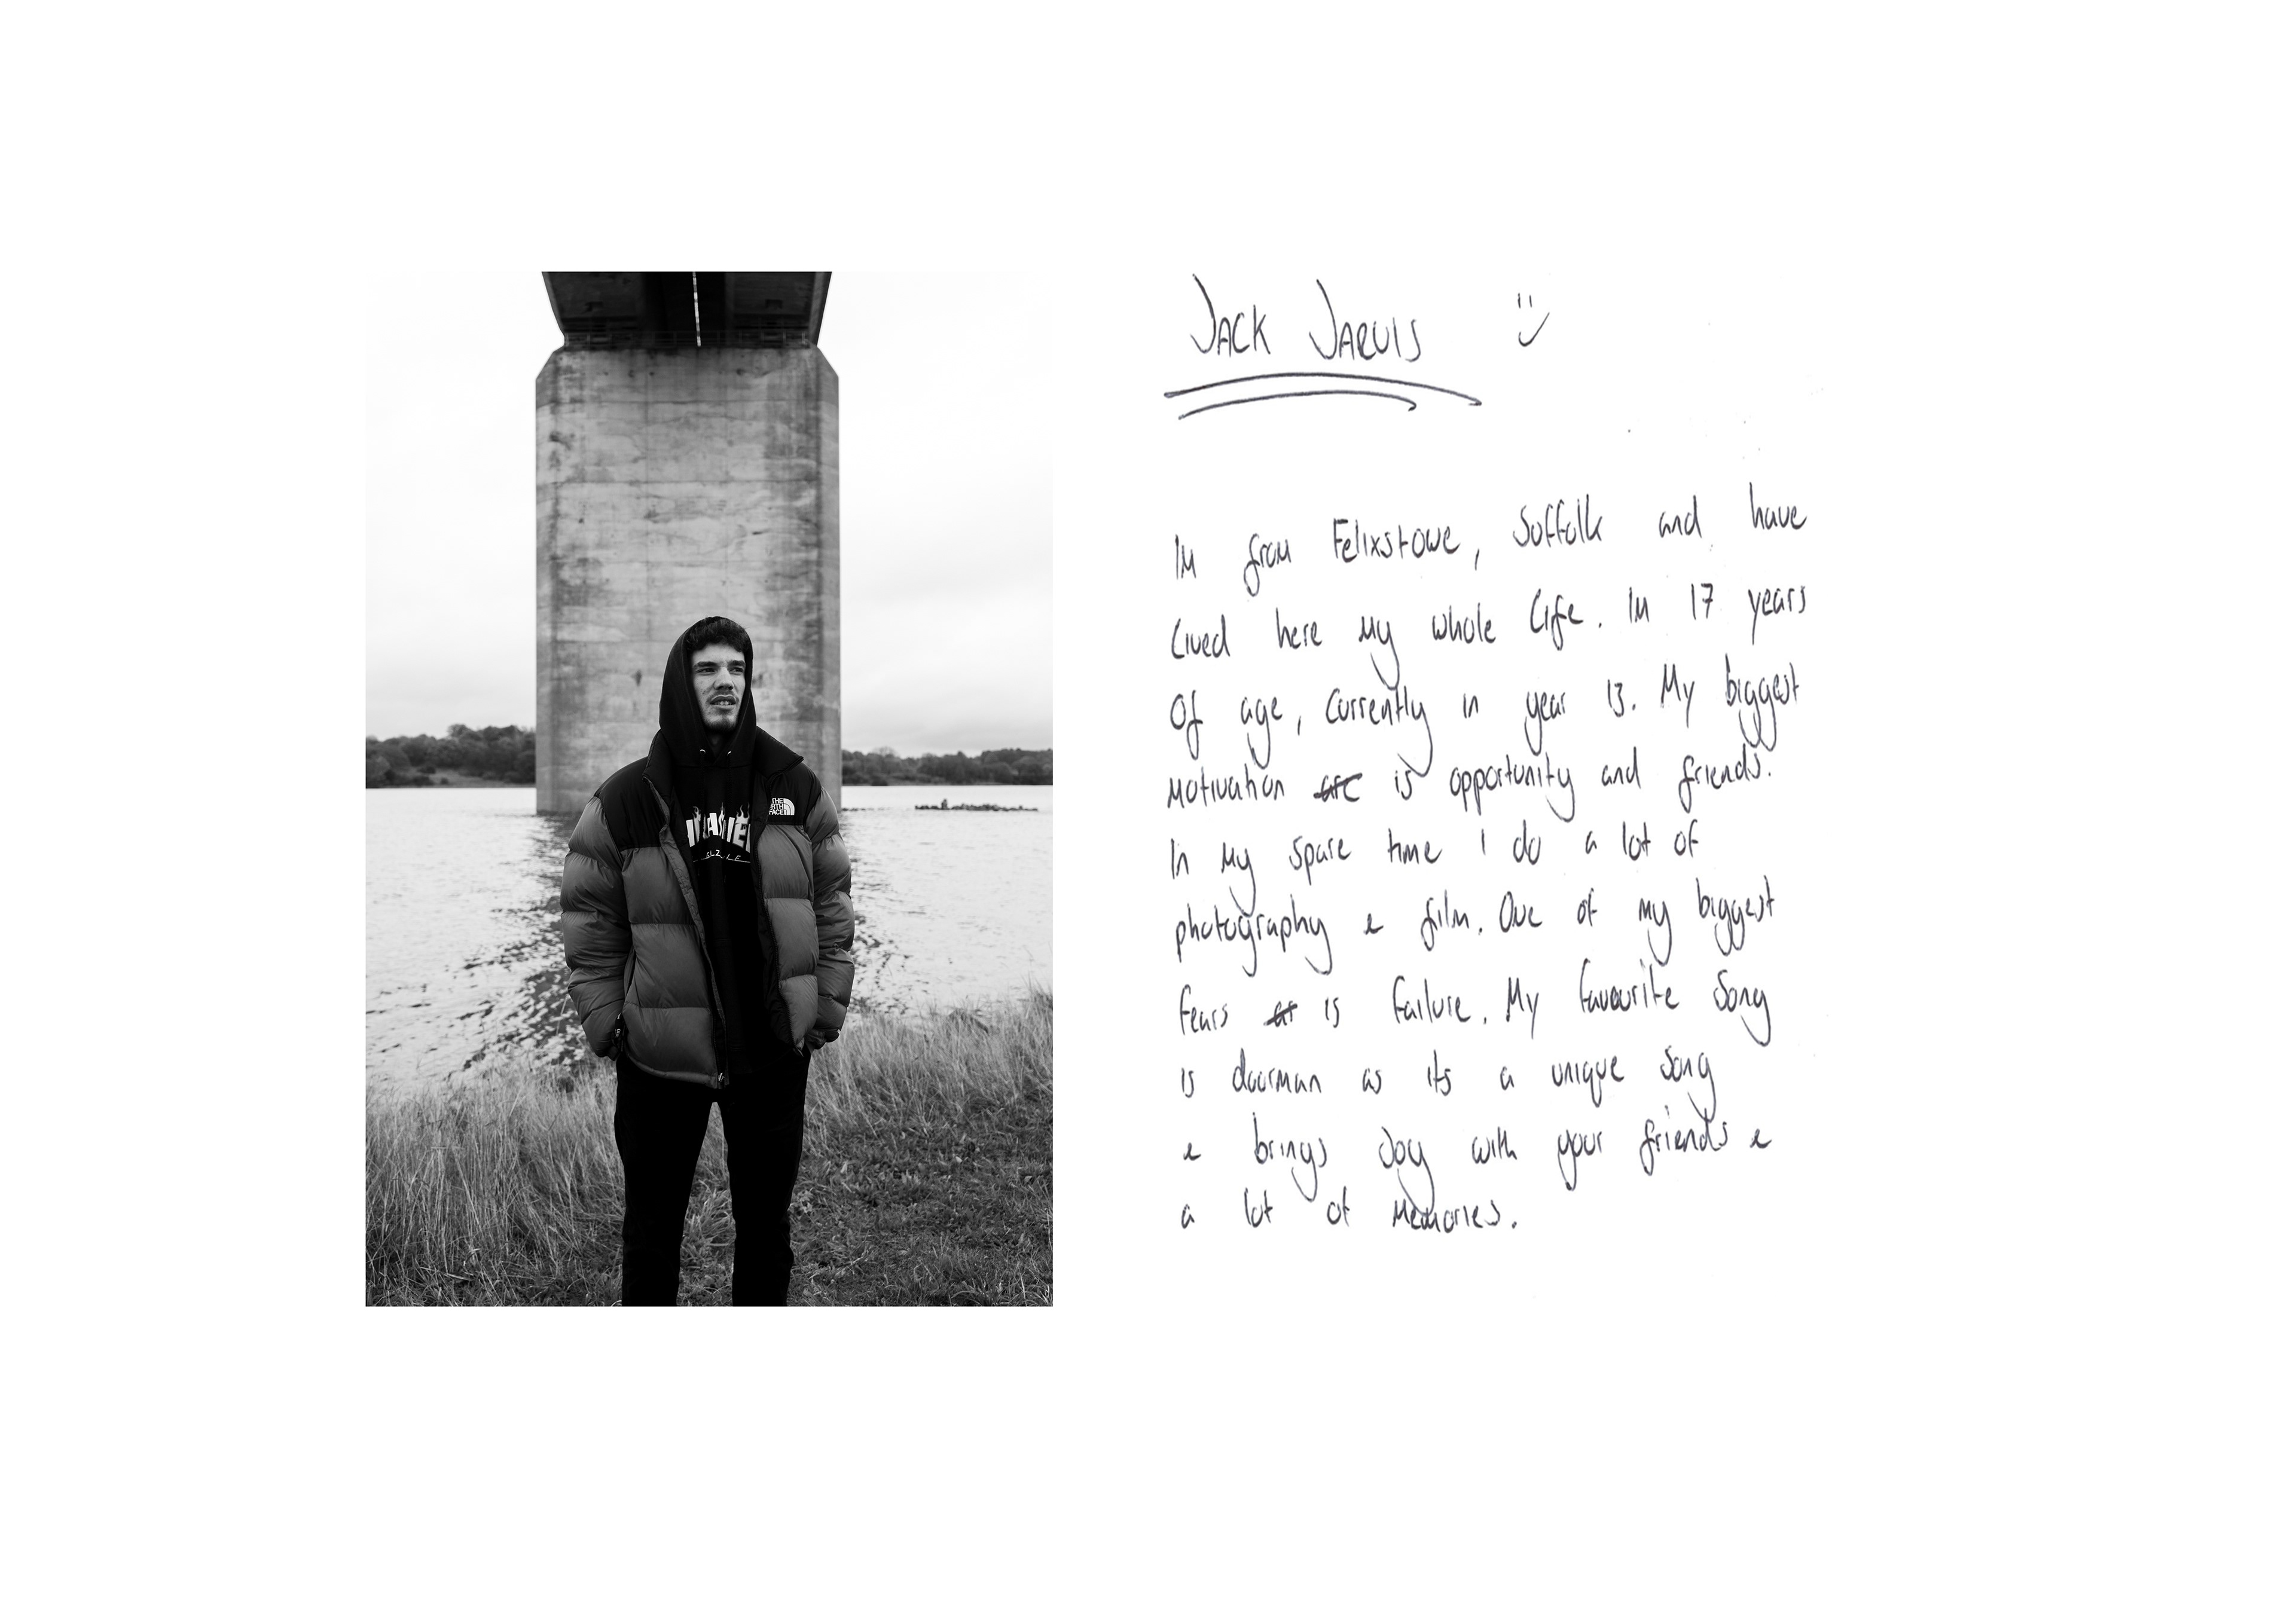 THE
NORTH
FACE
JACK JARVIS
Im from Felixstowe, Suffolk and have
lived here my whole life. Im 17 years
of age, currently in year 13. My biggest
motivation are is opportunity and friends.
In my spare time I do a lot of
photography & film. One of my biggest
fears ar is failure. My favourite song
is doorman as its a unique song
& brings Joy with your friends &
a lot of memories.